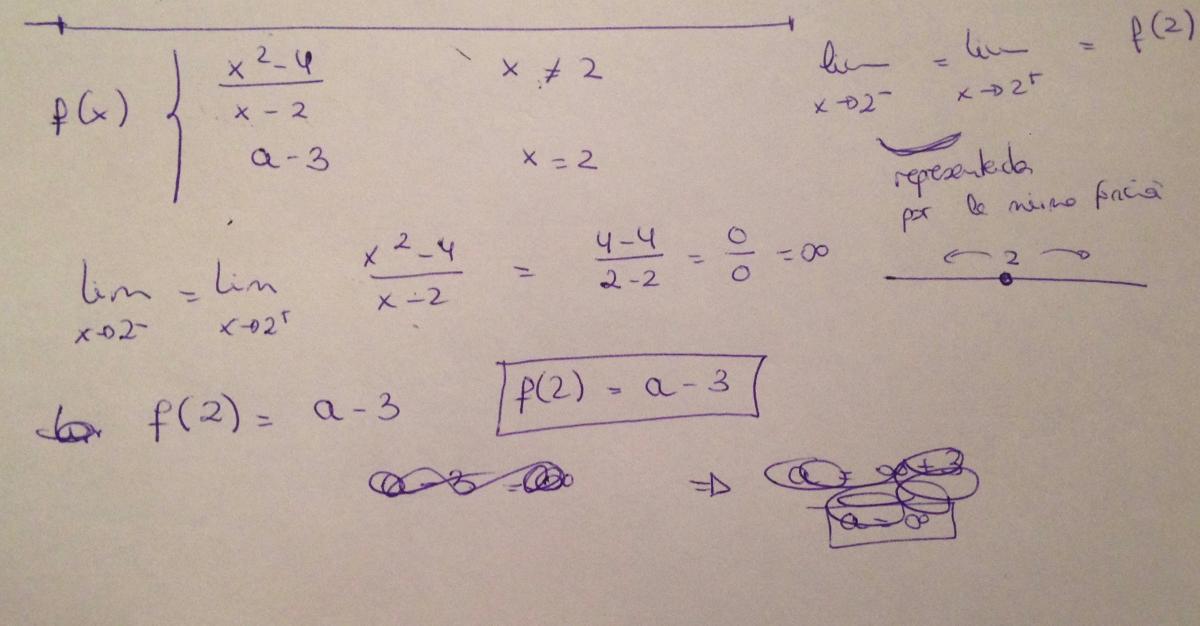 f(x) { x² - 4 / x - 2    x ≠ 2
a - 3    x = 2
lim x→2⁻ = lim x→2⁺ = f(2)
representada
por la misma función
← 2 →
lim x→2⁻ = lim x→2⁺ x² - 4 / x - 2 = 4 - 4 / 2 - 2 = 0 / 0 = ∞
f(2) = a - 3    f(2) = a - 3
⇒
a = ∞